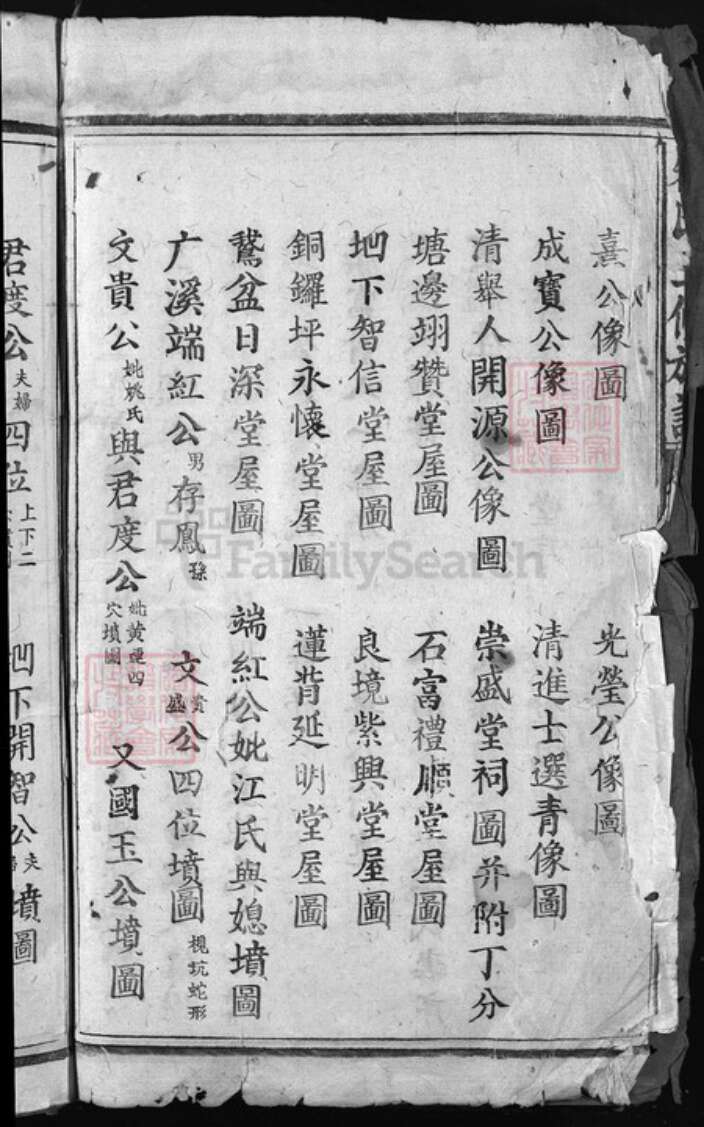 熹公像圖　光瑩公像圖
成寶公像圖　清進士選青像圖
清舉人開源公像圖　崇盛堂祠圖并附丁分
塘邊翊贊堂屋圖　石富禮順堂屋圖
地下智信堂屋圖　良境紫興堂屋圖
銅鑼坪永懷堂屋圖　蓮背延明堂屋圖
鵞盆日深堂屋圖　端紅公妣江氏與媳墳圖
广溪端紅公男存鳳孫文貴盛公四位墳圖槐坑蛇形
文貴公妣姚氏與君度公妣黃運四穴墳圖　又國玉公墳圖
君度公夫婦四位上下二　地下開智公夫墳圖
FamilySearch